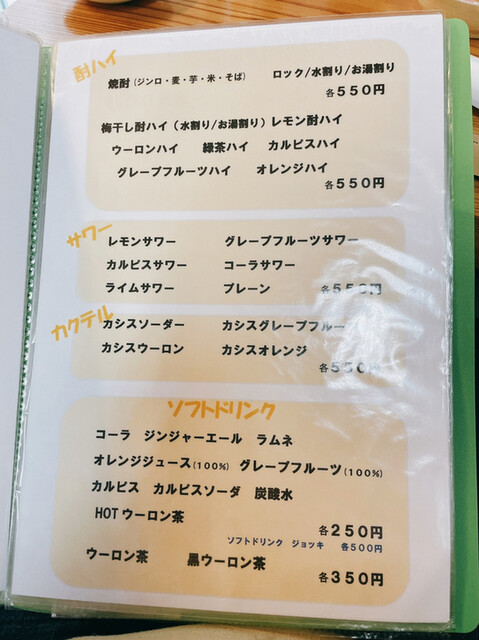 酎ハイ
焼酎(ジンロ・麦・芋・米・そば) ロック/水割り/お湯割り
各550円
梅干し酎ハイ(水割り/お湯割り)レモン酎ハイ
ウーロンハイ 緑茶ハイ カルピスハイ
グレープフルーツハイ オレンジハイ
各550円
サワー
レモンサワー グレープフルーツサワー
カルピスサワー コーラサワー
ライムサワー プレーン 各550円
カクテル
カシスソーダー カシスグレープフルー
カシスウーロン カシスオレンジ
各550円
ソフトドリンク
コーラ ジンジャーエール ラムネ
オレンジジュース(100%) グレープフルーツ(100%)
カルピス カルピスソーダ 炭酸水
HOTウーロン茶 各250円
ソフトドリンク ジョッキ 各500円
ウーロン茶 黒ウーロン茶
各350円